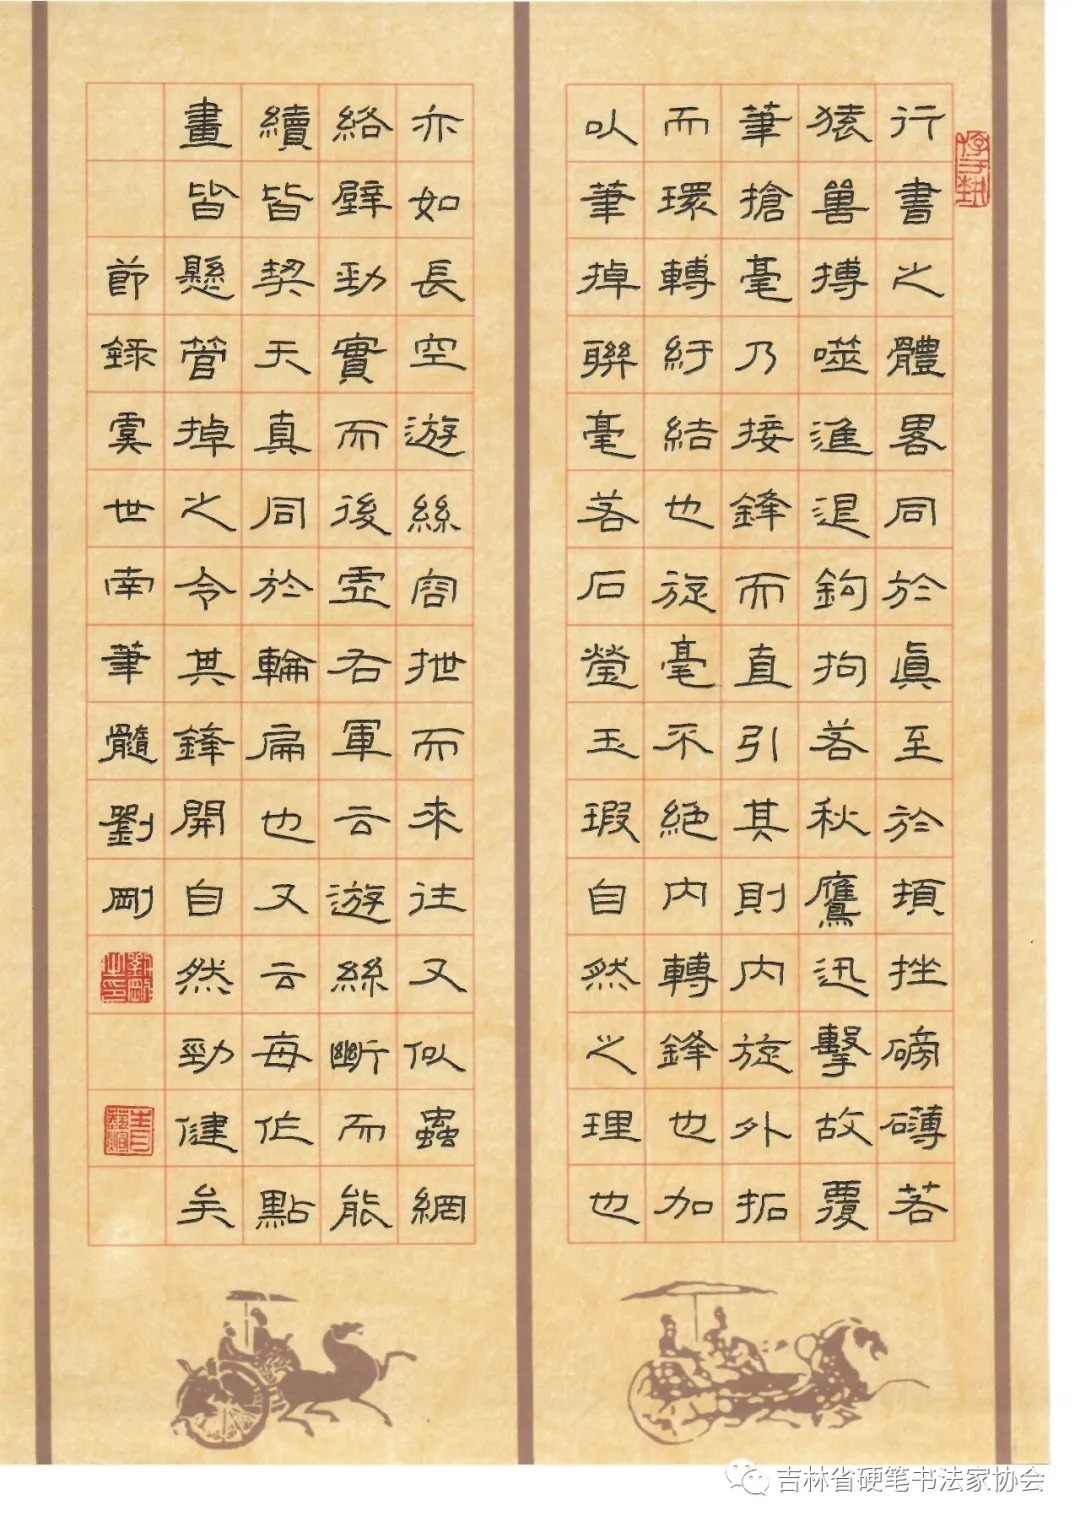 行書之體畧同於眞至於頓挫磅礴若
猿嘼搏噬進退鉤拘若秋鷹迅擊故覆
筆搶毫乃接鋒而直引其則内旋外拓
而環轉紓結也旋毫不絕内轉鋒也加
以筆掉聯毫若石瑩玉瑕自然之理也
亦如長空遊絲容抴而來往又似蟲網
絡壁勁實而後虛右軍云遊絲斷而能
續皆契天真同於輪扁也又云每作點
畫皆懸管掉之令其鋒開自然勁健矣
節録虞世南筆髓劉剛
劉剛之印
吉林省硬笔书法家协会